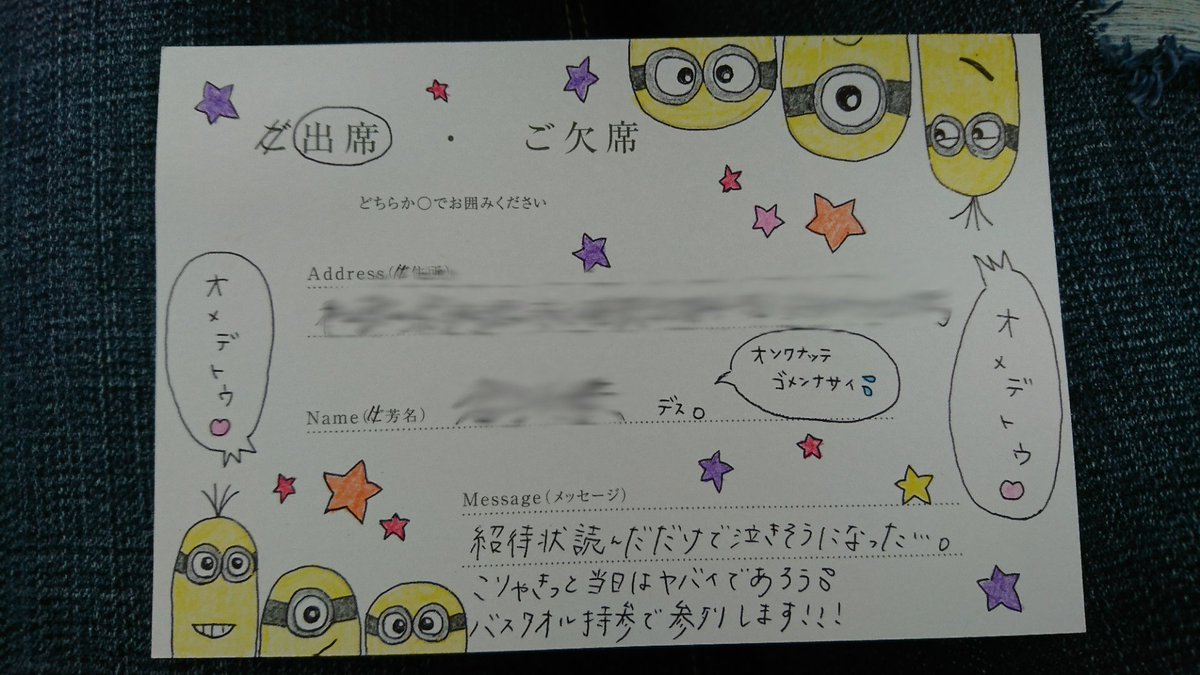 ご出席 ・ ご欠席
どちらか○でお囲みください
Address(ご住所)
オンワナッテ
ゴメンナサイ
Name(ご芳名)
デス。
オメデトウ
オメデトウ
Message(メッセージ)
紹待状読んだだけで泣きそうになった…。
こりゃきっと当日はヤバイであろう。
バスタオル持参で参列します!!!